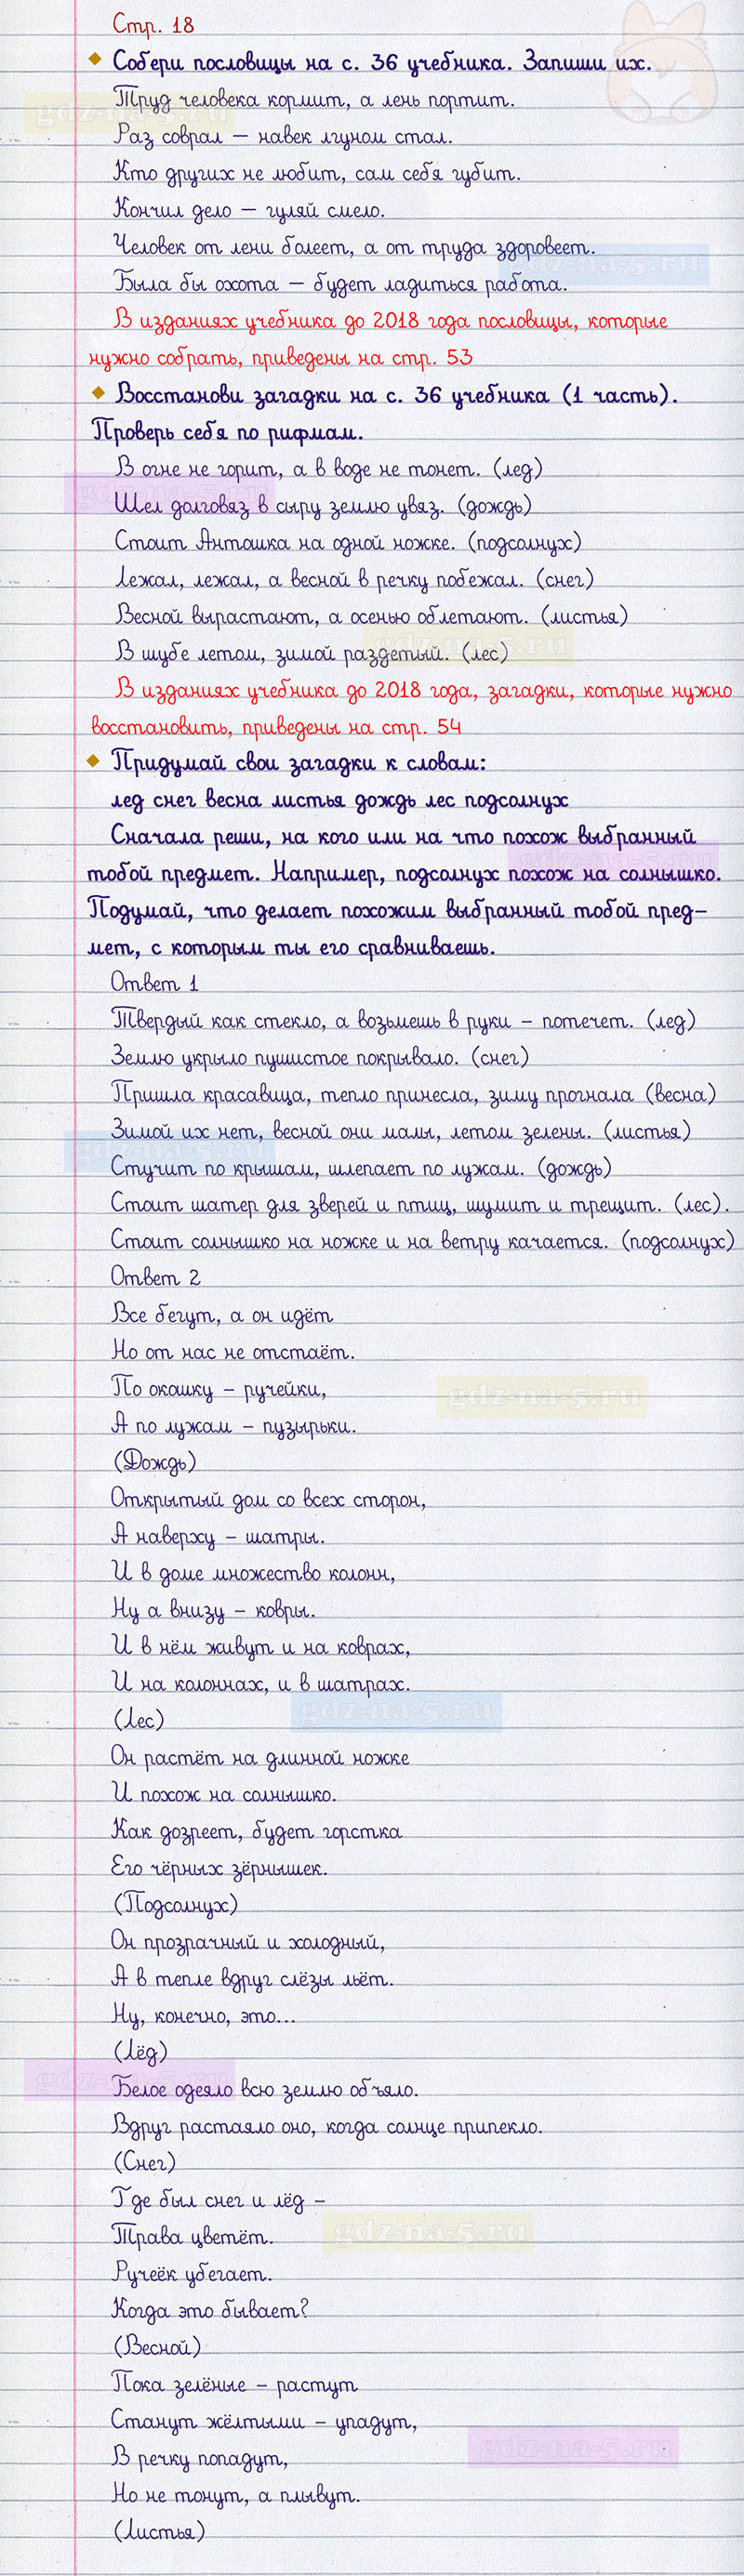 Стр. 18
Собери пословицы на с. 36 учебника. Запиши их.
Труд человека кормит, а лень портит.
gdz-na-5.ru
Раз соврал – навек лгуном стал.
Кто других не любит, сам себя губит.
Кончил дело – гуляй смело.
Человек от лени болеет, а от труда здоровеет.
gdz-na-5.ru
Была бы охота – будет ладиться работа.
В изданиях учебника до 2018 года пословицы, которые
нужно собрать, приведены на стр. 53
Восстанови загадки на с. 36 учебника (1 часть).
Проверь себя по рифмам.
В огне не горит, а в воде не тонет. (лед)
gdz-na-5.ru
Шел долговяз в сыру землю увяз. (дождь)
Стоит Антошка на одной ножке. (подсолнух)
Лежал, лежал, а весной в речку побежал. (снег)
Весной вырастают, а осенью облетают. (листья)
gdz-na-5.ru
В шубе летом, зимой раздетый. (лес)
В изданиях учебника до 2018 года, загадки, которые нужно
восстановить, приведены на стр. 54
Придумай свои загадки к словам:
лед снег весна листья дождь лес подсолнух
Сначала реши, на кого или на что похож выбранный
gdz-na-5.ru
тобой предмет. Например, подсолнух похож на солнышко.
Подумай, что делает похожим выбранный тобой пред-
мет, с которым ты его сравниваешь.
Ответ 1
Твердый как стекло, а возьмешь в руки – потечет. (лед)
Землю укрыло пушистое покрывало. (снег)
Пришла красавица, тепло принесла, зиму прогнала (весна)
Зимой их нет, весной они малы, летом зелены. (листья)
gdz-na-5.ru
Стучит по крышам, шлепает по лужам. (дождь)
Стоит шатер для зверей и птиц, шумит и трещит. (лес).
Стоит солнышко на ножке и на ветру качается. (подсолнух)
Ответ 2
Все бегут, а он идёт
Но от нас не отстаёт.
По окошку – ручейки,
gdz-na-5.ru
А по лужам – пузырьки.
(Дождь)
Открытый дом со всех сторон,
А наверху – шатры.
И в доме множество колонн,
Ну а внизу – ковры.
И в нём живут и на коврах,
И на колоннах, и в шатрах.
gdz-na-5.ru
(Лес)
Он растёт на длинной ножке
И похож на солнышко.
Как дозреет, будет горстка
Его чёрных зёрнышек.
(Подсолнух)
Он прозрачный и холодный,
А в тепле вдруг слёзы льёт.
Ну, конечно, это...
(Лёд)
gdz-na-5.ru
Белое одеяло всю землю объяло.
Вдруг растаяло оно, когда солнце припекло.
(Снег)
Где был снег и лёд –
gdz-na-5.ru
Трава цветёт.
Ручеёк убегает.
Когда это бывает?
(Весной)
Пока зелёные – растут
Станут жёлтыми – упадут,
gdz-na-5.ru
В речку попадут,
Но не тонут, а плывут.
(Листья)